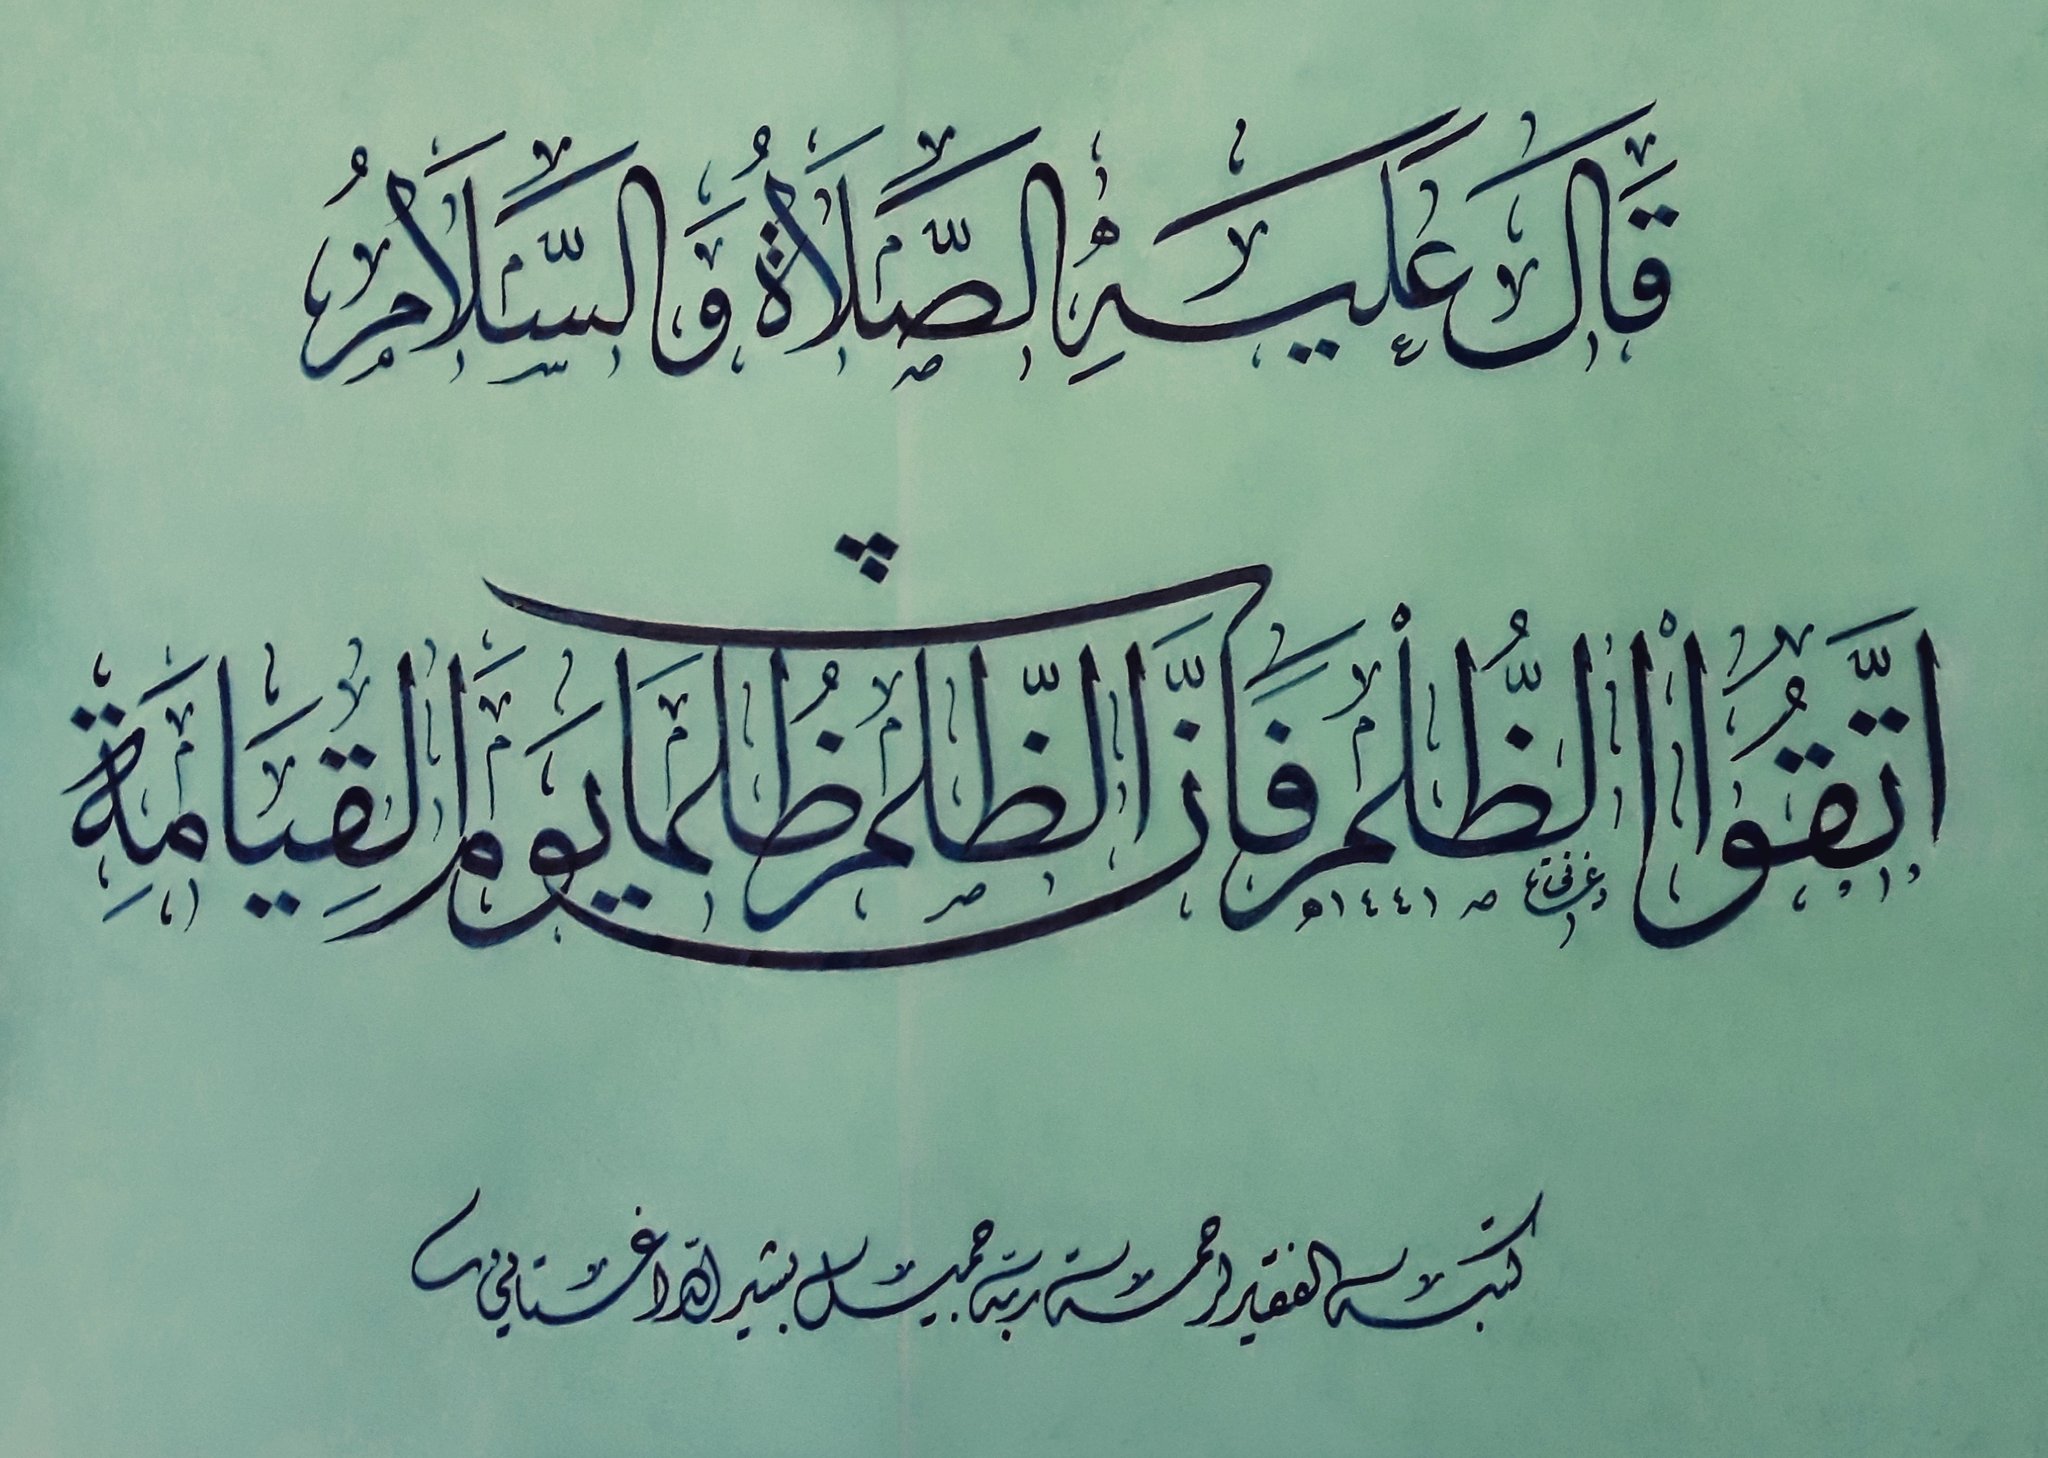 قَالَ عَلَيهِ الصَّلَاةُ وَالسَّلَامُ
اتَّقُوا الظُّلْمَ فَإِنَّ الظُّلْمَ ظُلُمَاتٌ يَوْمَ القِيَامَةِ
١٤٤١ه
كتبه الفقير لرحمة ربه جميل بشير الداغستاني